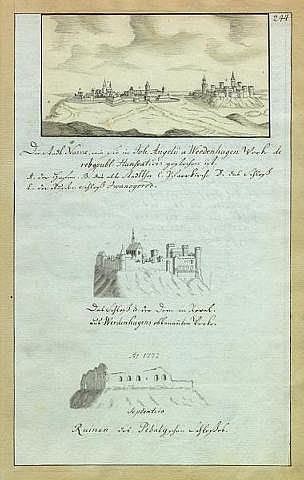 244
Die Stadt Narva, wie sie in Joh. Angelii a Werdenhagen Werk de
rebuspubl. Hanseaticis gestochen ist.
A. der Hafen. B. das alte Stadtthor C. Kirche D. das Schloß
E. das Schloß Iwanogorod.
Das Schloß & der Dom in Reval.
aus Werdenhagens obbenannten Werke.
Ao 1777
Septentrio
Ruinen des Pebalgschen Schloßes.